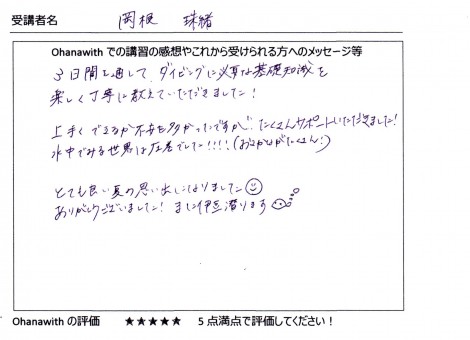 受講者名　岡根　珠緒
Ohanawith での講習の感想やこれから受けられる方へのメッセージ等
3日間を通して、ダイビングに必要な基礎知識を
楽しく丁寧に教えていただきました！
上手くできるか不安も多かったですが、たくさんサポートいただきました！
水中でみる世界は圧巻でした!!!!(おさかながたくさん:)
とても良い夏の思い出になりました☺
ありがとうございました！また伊豆潜ります
Ohanawith の評価　★★★★★　5点満点で評価してください！